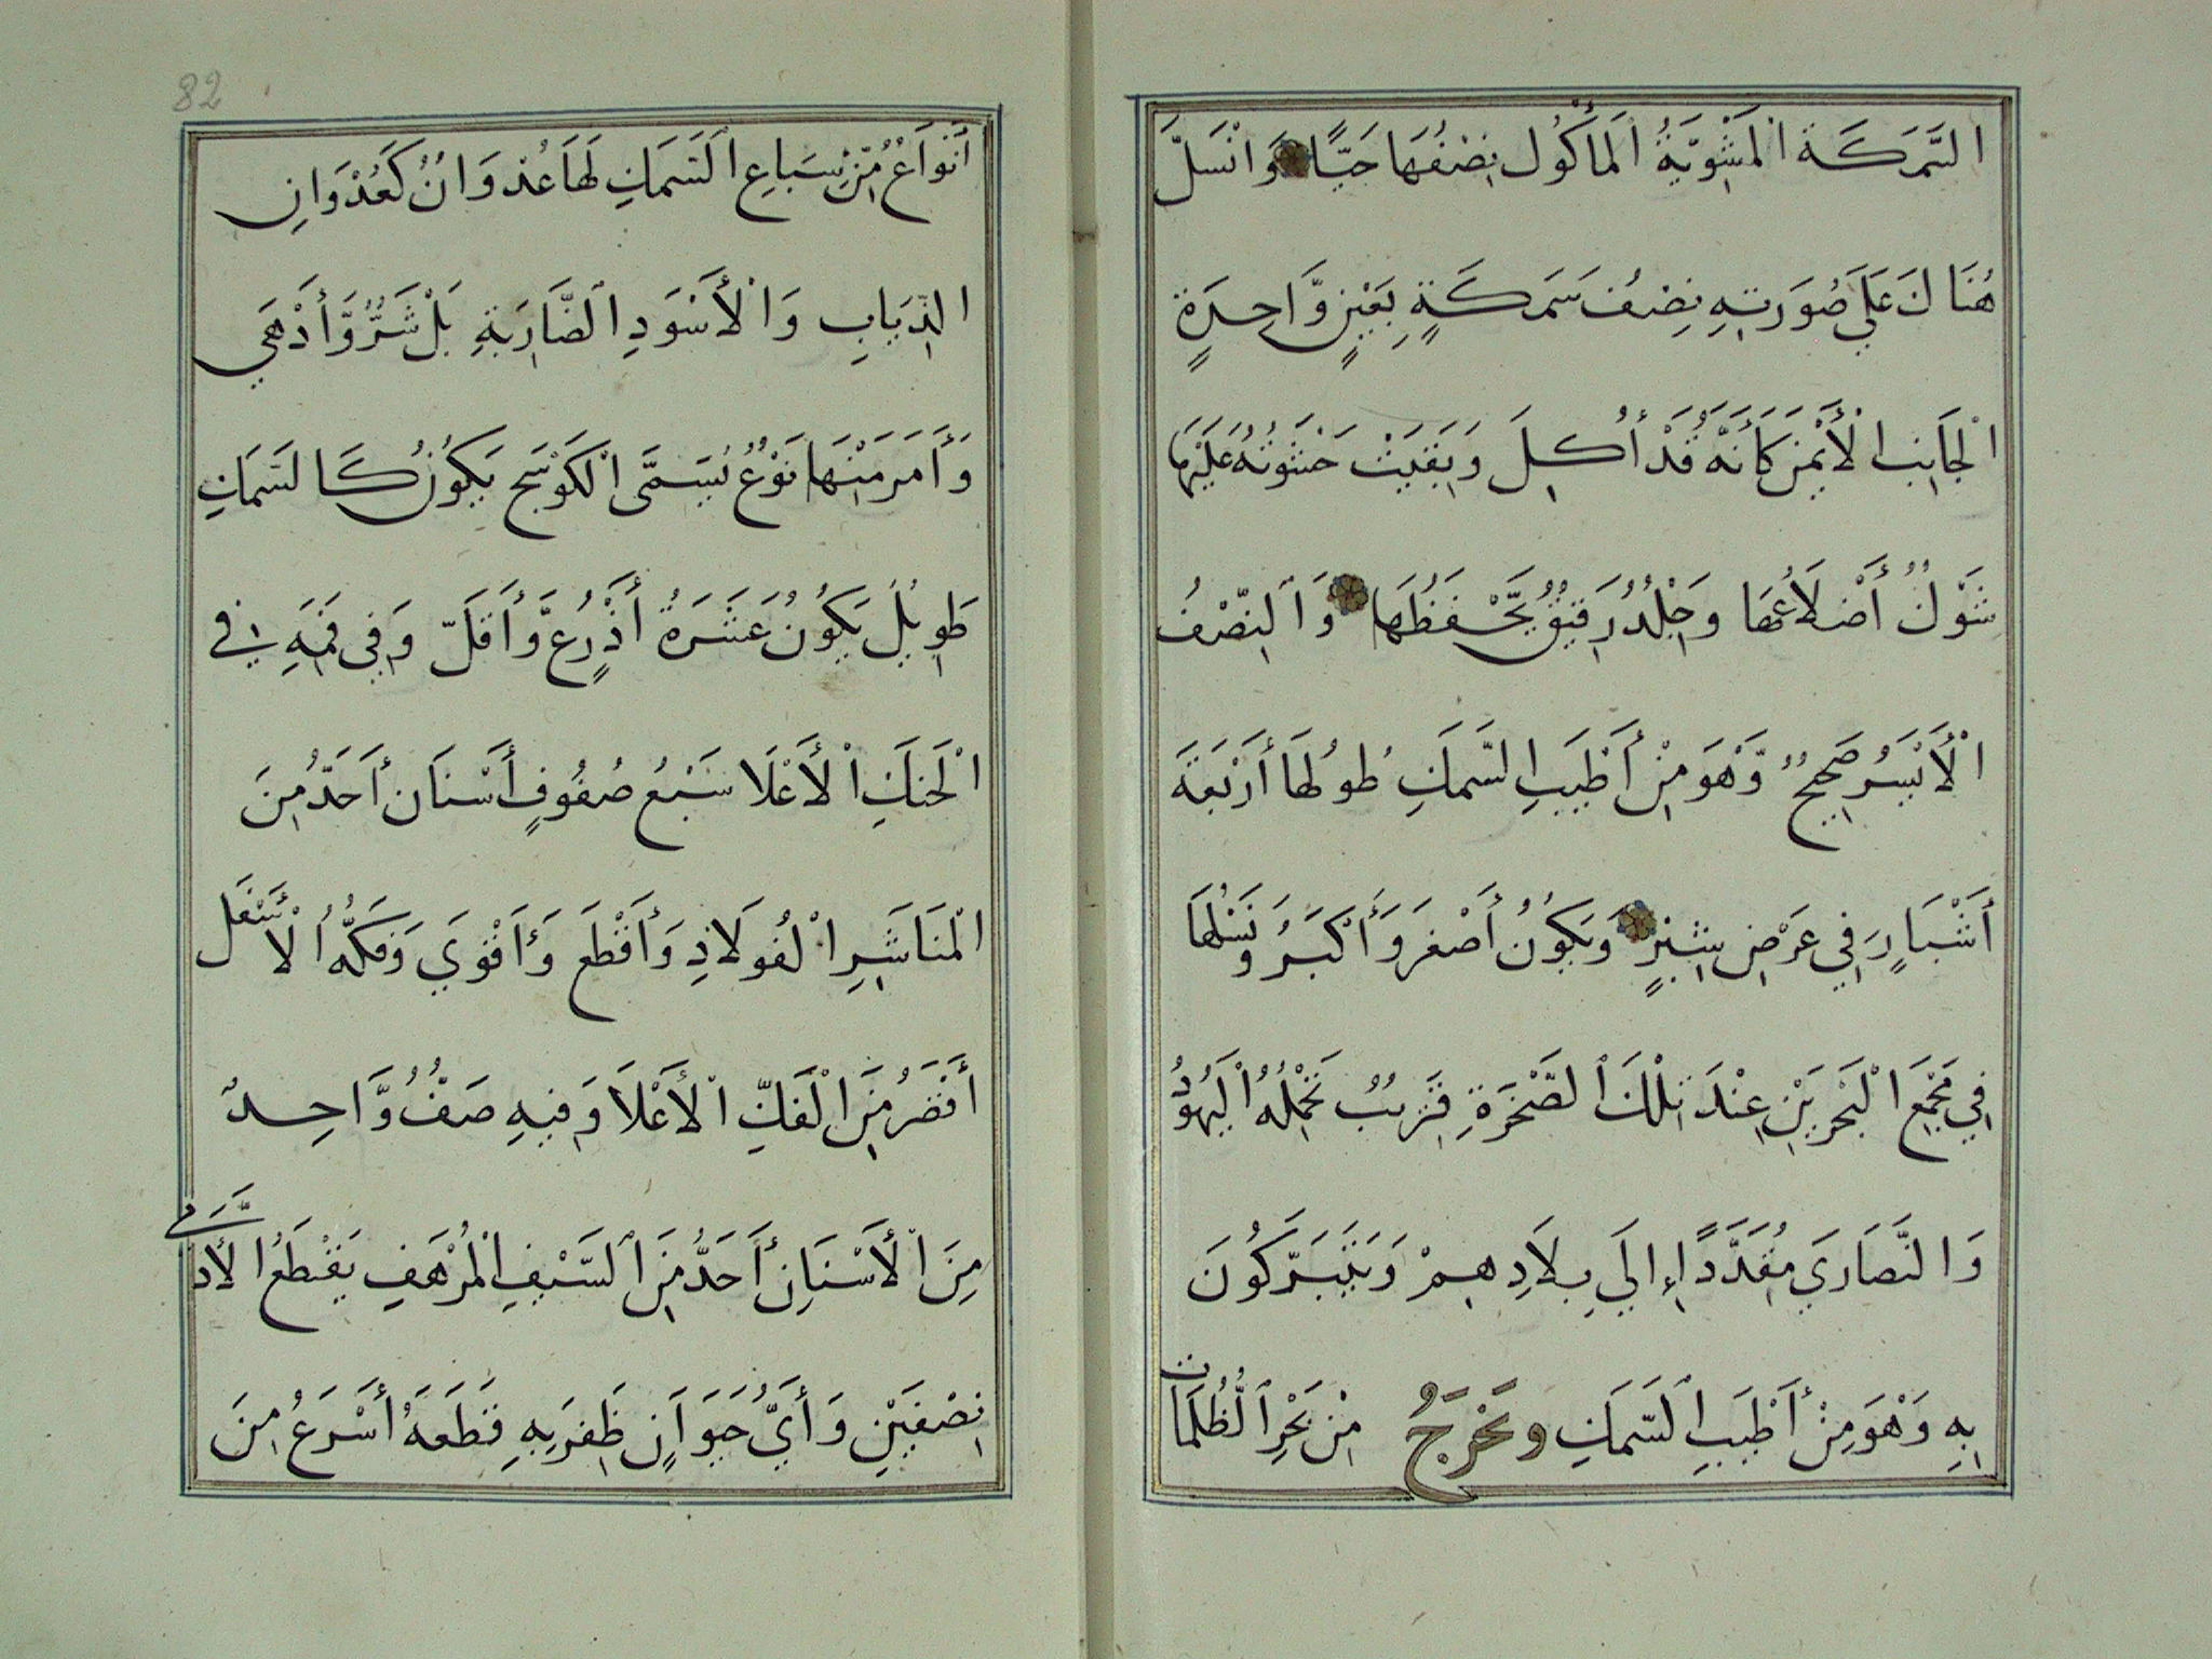 السَّمَكَةَ الْمَشْوِيَّةُ الْمَأْكُول نِصْفُهَا حَيًّا وَانْسَلَّ
هُنَاكَ عَلَي صُورَتِهِ نِصْفُ سَمَكَةٍ بِعَيْنٍ وَّاحِدَةٍ
الْجَانِبِ الْأَيْمَنِ كَأَنَّهُ قَدْ أُكِلَ وَبَقِيَتْ خَشْوَتُهُ عَلَيْهَا
شَوْكُ أَضْلَاعُهَا وَجِلْدٌ رَقِيقٌ يَّحْفَظُهَا وَالنِّصْفُ
الْأَيْسَرُ صَحِيحٌ وَّهْوَ مِنْ أَطْيَبِ السَّمَكِ طُولُهَا أَرْبَعَةَ
أَشْبَارٍ فِي عَرْضِ شِبْرٍ وَيَكُونُ أَصْغَرَ وَأَكْبَرُ وَنَسْلُهَا
فِي مَجْمَعِ الْبَحْرَيْنِ عِنْدَ تِلْكَ الصَّخْرَةِ قَرِيبٌ تَحْمِلُهُ الْيَهُودُ
وَالنَّصَارَي مُقَدَّدًا إِلَي بِلَادِهِمْ وَيَتَبَرَّكُونَ
بِهِ وَهْوَ مِنْ أَطْيَبِ السَّمَكِ وتَخْرَجُ مِنْ بَحْرِ الظُّلُمَاتِ
82
أَنْوَاعٌ مِّنْ سِبَاعِ السَّمَكِ لَهَا عُدْوَانٌ كَعُدْوَانِ
الذِّيَابِ وَالْأُسُودِ الضَّارِيَةِ بَلْ شَرٌّ وَّأَدْهَي
وَأَمَرَّ مِنْهَا نَوْعٌ يُسَمَّى الْكَوْسَج يَكُونُ كَالسَّمَكِ
طَوِيلٌ يَكُونُ عَشَرَةُ أَذْرُعٍ وَّأَقَلّ وَفِي فَمِهِ فِي
الْحَنَكِ الْأَعْلَا سَبْعُ صُفُوفٍ أَسْنَان أَحَدُّ مِنَ
الْمَنَاشِيرِ الْفُولَاذِ وَأَقْطَع وَأَقْوَي وَفَكُّهُ الْأَسْفَل
أَقْصَرُ مِنَ الْفَكِّ الْأَعْلَا وَفِيهِ صَفٌّ وَّاحِدٌ
مِنَ الْأَسْنَانِ أَحَدُّ مِنَ السَّيْفِ الْمُرْهَفِ يَقْطَعُ الْأَدَمِيَّ
نِصْفَيْنِ وَأَيُّ حَيَوَانٍ ظَفِرَ بِهِ قَطَعَهُ أَسْرَعُ مِنَ